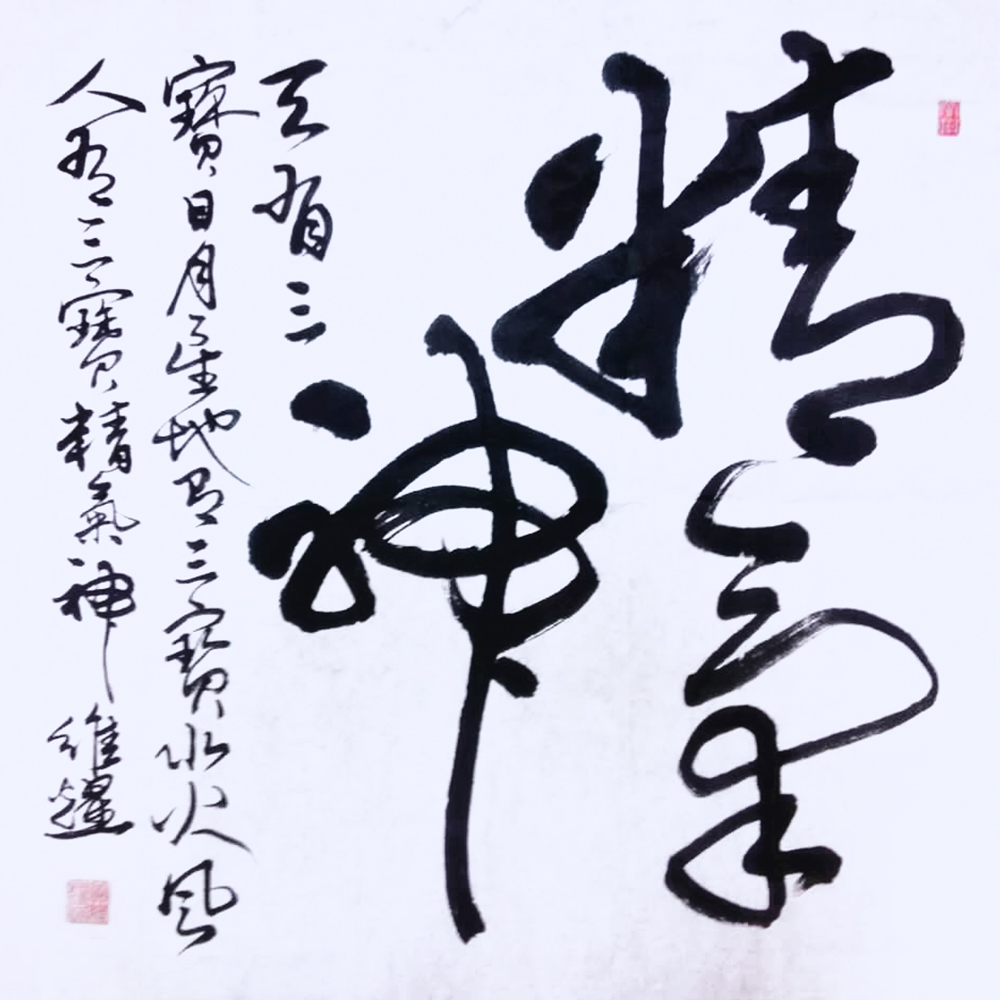 精氣
神
天有三
寶日月星地有三寶水火風
人有三寶精氣神 維耀